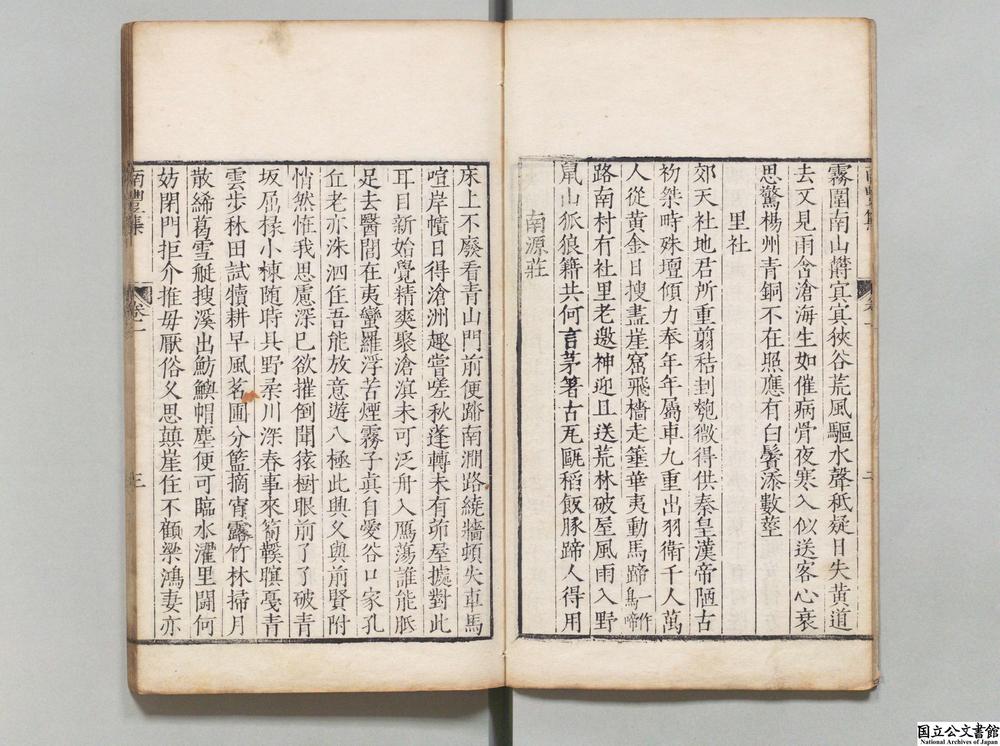 霧圍南山鬱冥冥狹谷荒風驅水聲秪疑日失黃道
去又見雨含滄海生如催病骨夜寒入似送客心衰
思驚楊州青銅不在照應有白鬢添數莖
里社
郊天社地君所重翦秸封匏微得供秦皇漢帝陋古
初桀時殊壇傾力奉年年屬車九重出羽衛千人萬
人從黃金日搜盡崖窟飛檣走箠華夷動馬蹄一作鳥啼
路南村有社里老邀神迎且送荒林破屋風雨入野
鼠山狐狼籍共何言茅箸古瓦甌稻飯豚蹄人得用
南源莊
床上不廢看青山門前便踏南澗路繞牆頓失車馬
喧岸幘日得滄洲趣嘗嗟秋蓬轉未有茆屋據對此
耳目新始覺精爽聚滄溟未可泛舟入鴈蕩誰能胝
足去醫閭在夷蠻羅浮苦煙霧子真自愛谷口家孔
丘老亦洙泗住吾能放意遊八極此興又與前賢附
悄然怪我思慮深已欲摧倒聞猿樹眼前了了破青
坂屈椂小棟随時具野柔川深春事來篛䙔䎡戞青
雲步秫田試犢耕早風茗圃分籃摘宵露竹林掃月
散絺葛雪艇搜溪出魴鱮帽塵便可臨水濯里閈何
妨閉門拒介推毋厭俗又思顛崖住不顧梁鴻妻亦
南豐集
卷一
三